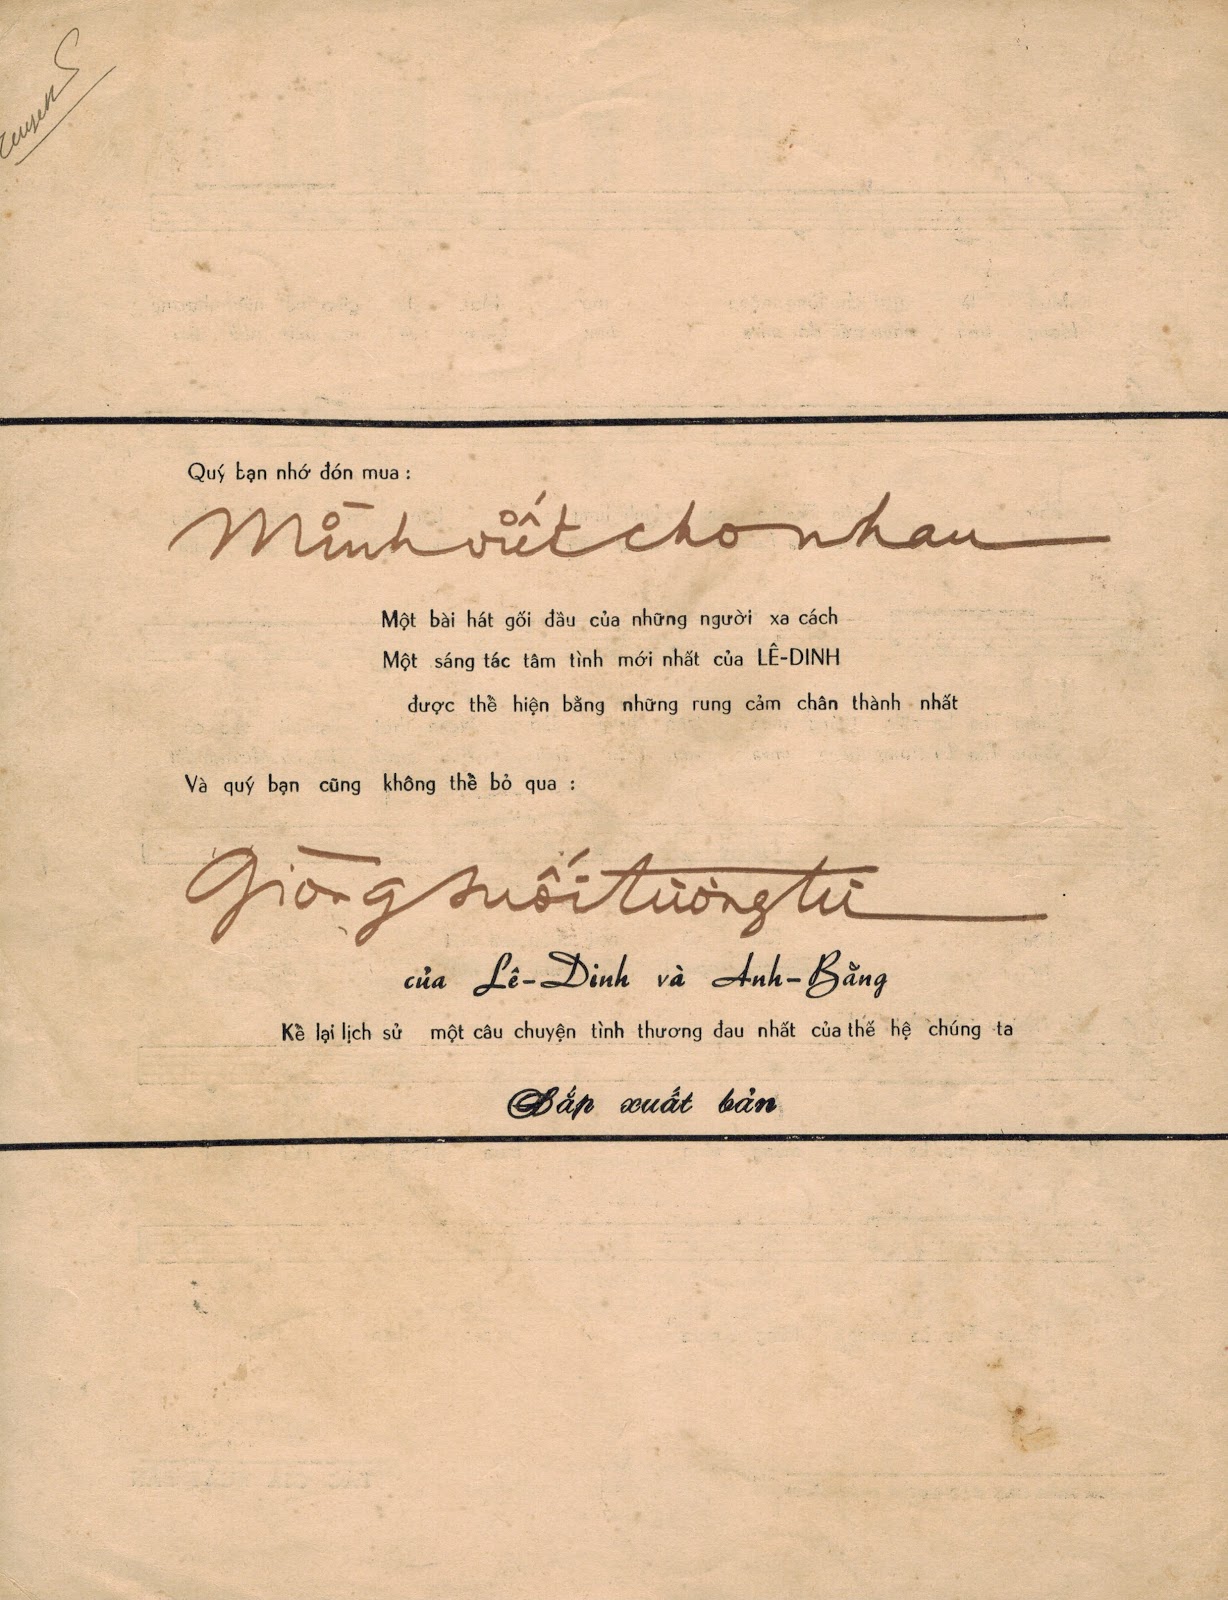 Quý bạn nhớ đón mua :
Mình viết cho nhau
Một bài hát gối đầu của những người xa cách
Một sáng tác tâm tình mới nhất của LÊ-DINH
được thề hiện bằng những rung cảm chân thành nhất
Và quý bạn cũng không thề bỏ qua :
Giòng suối tương tư
của Lê-Dinh và Anh-Bằng
Kề lại lịch sử một câu chuyện tình thương đau nhất của thế hệ chúng ta
Sắp xuất bản